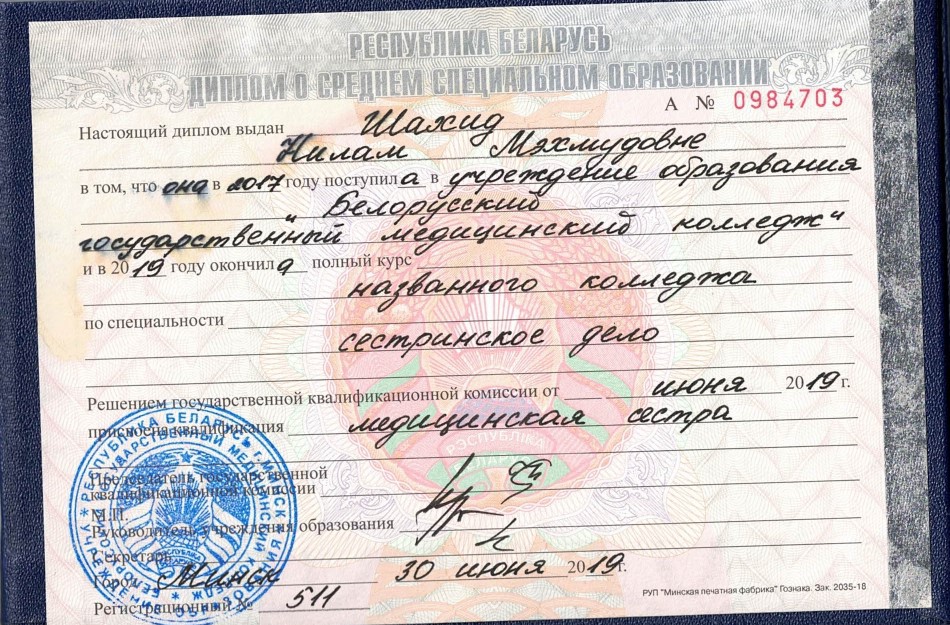 РЕСПУБЛИКА БЕЛАРУСЬ
ДИПЛОМ О СРЕДНЕМ СПЕЦИАЛЬНОМ ОБРАЗОВАНИИ
А № 0984703
Настоящий диплом выдан Шахид
Нилам Мэхмудовне
в том, что она в 2017 году поступила в учреждение образования
"Белорусский
государственный медицинский колледж"
и в 2019 году окончила полный курс
названного колледжа
по специальности
сестринское дело
Решением государственной квалификационной комиссии от июня 2019 г.
присвоена квалификация медицинская сестра
Председатель государственной
квалификационной комиссии
М.П.
Руководитель учреждения образования
Секретарь
Город Минск 30 июня 2019 г.
Регистрационный № 511
РУП "Минская печатная фабрика" Гознака. Зак. 2035-18
РЭСПУБЛІКА
РЕСПУБЛИКА БЕЛАРУСЬ